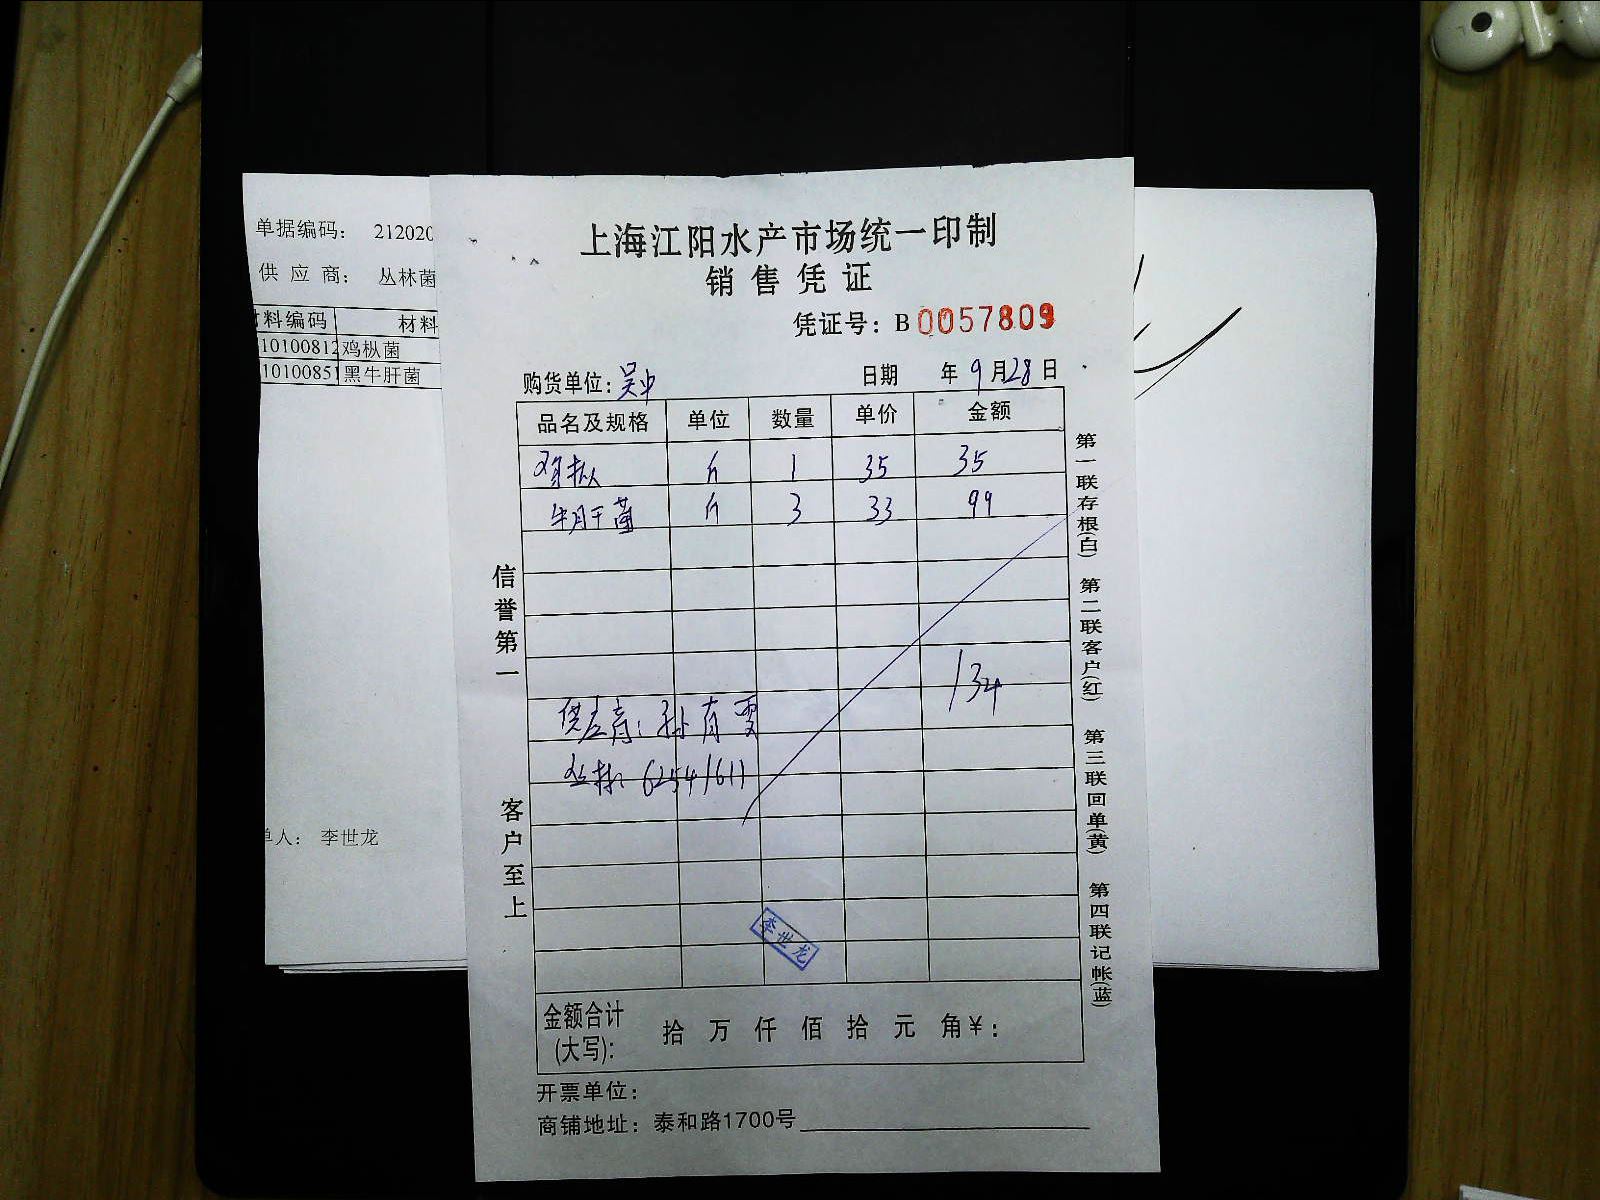 单据编码： 212020
供 应 商： 丛林菌
料编码 材料
10100812 鸡枞菌
10100851 黑牛肝菌
单人： 李世龙
上海江阳水产市场统一印制
销售凭证
凭证号：B0057809
购货单位：吴中
日期 年9月28日
品名及规格 单位 数量 单价 金额
鸡枞 斤 1 35 35
牛肝干菌 斤 3 33 99
134
供应商：孙有雯
丛林：62541611
李世龙
金额合计
(大写): 拾 万 仟 佰 拾 元 角¥：
开票单位：
商铺地址：泰和路1700号
信誉第一
客户至上
第一联存根(白)
第二联客户(红)
第三联回单(黄)
第四联记帐(蓝)